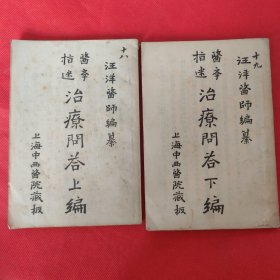 十八
汪洋醫師編纂
醫季指迷
治療問荅上編
上海中西醫院藏板
十九
汪洋醫師編纂
醫季指迷
治療問荅下編
上海中西醫院藏板